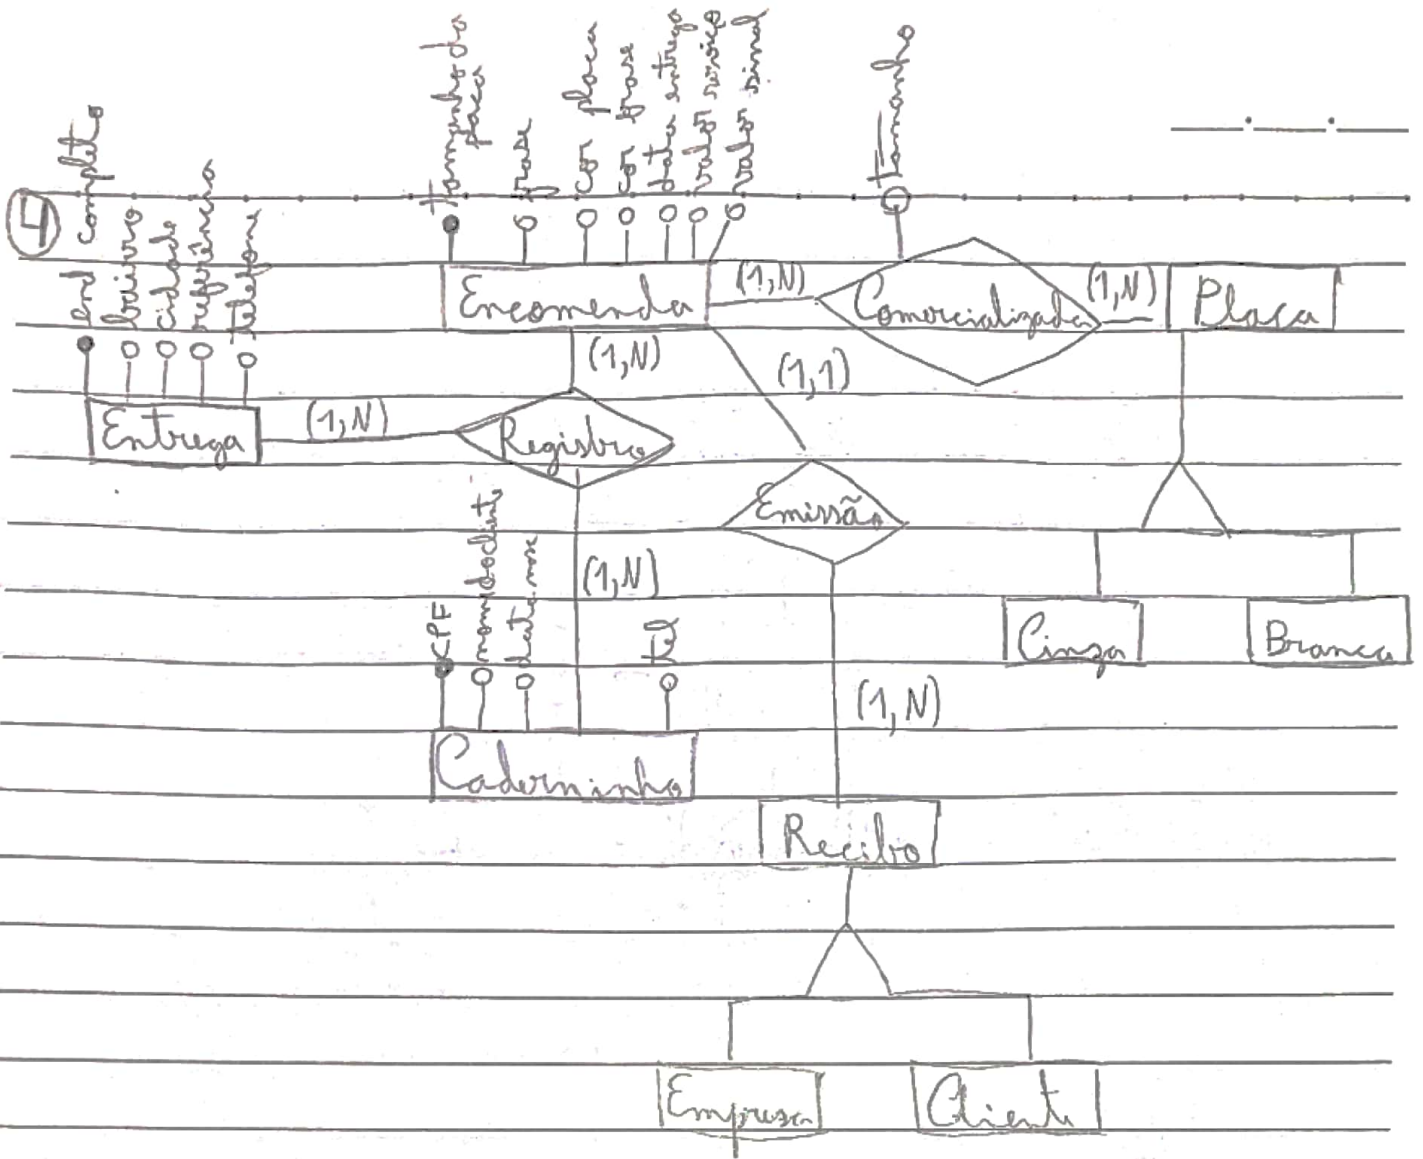 4
end completo
bairro
cidade
referência
telefone
tamanho da
placa
frase
cor placa
cor frase
data entrega
valor serviço
valor sinal
Tamanho
Encomenda
(1,N)
Comercializada
(1,N)
Placa
(1,N)
(1,1)
Entrega
(1,N)
Registro
Emissão
(1,N)
Cinza
Branca
CPF
nome do cliente
data nasc
Tel
(1,N)
Caderninho
Recibo
Empresa
Cliente